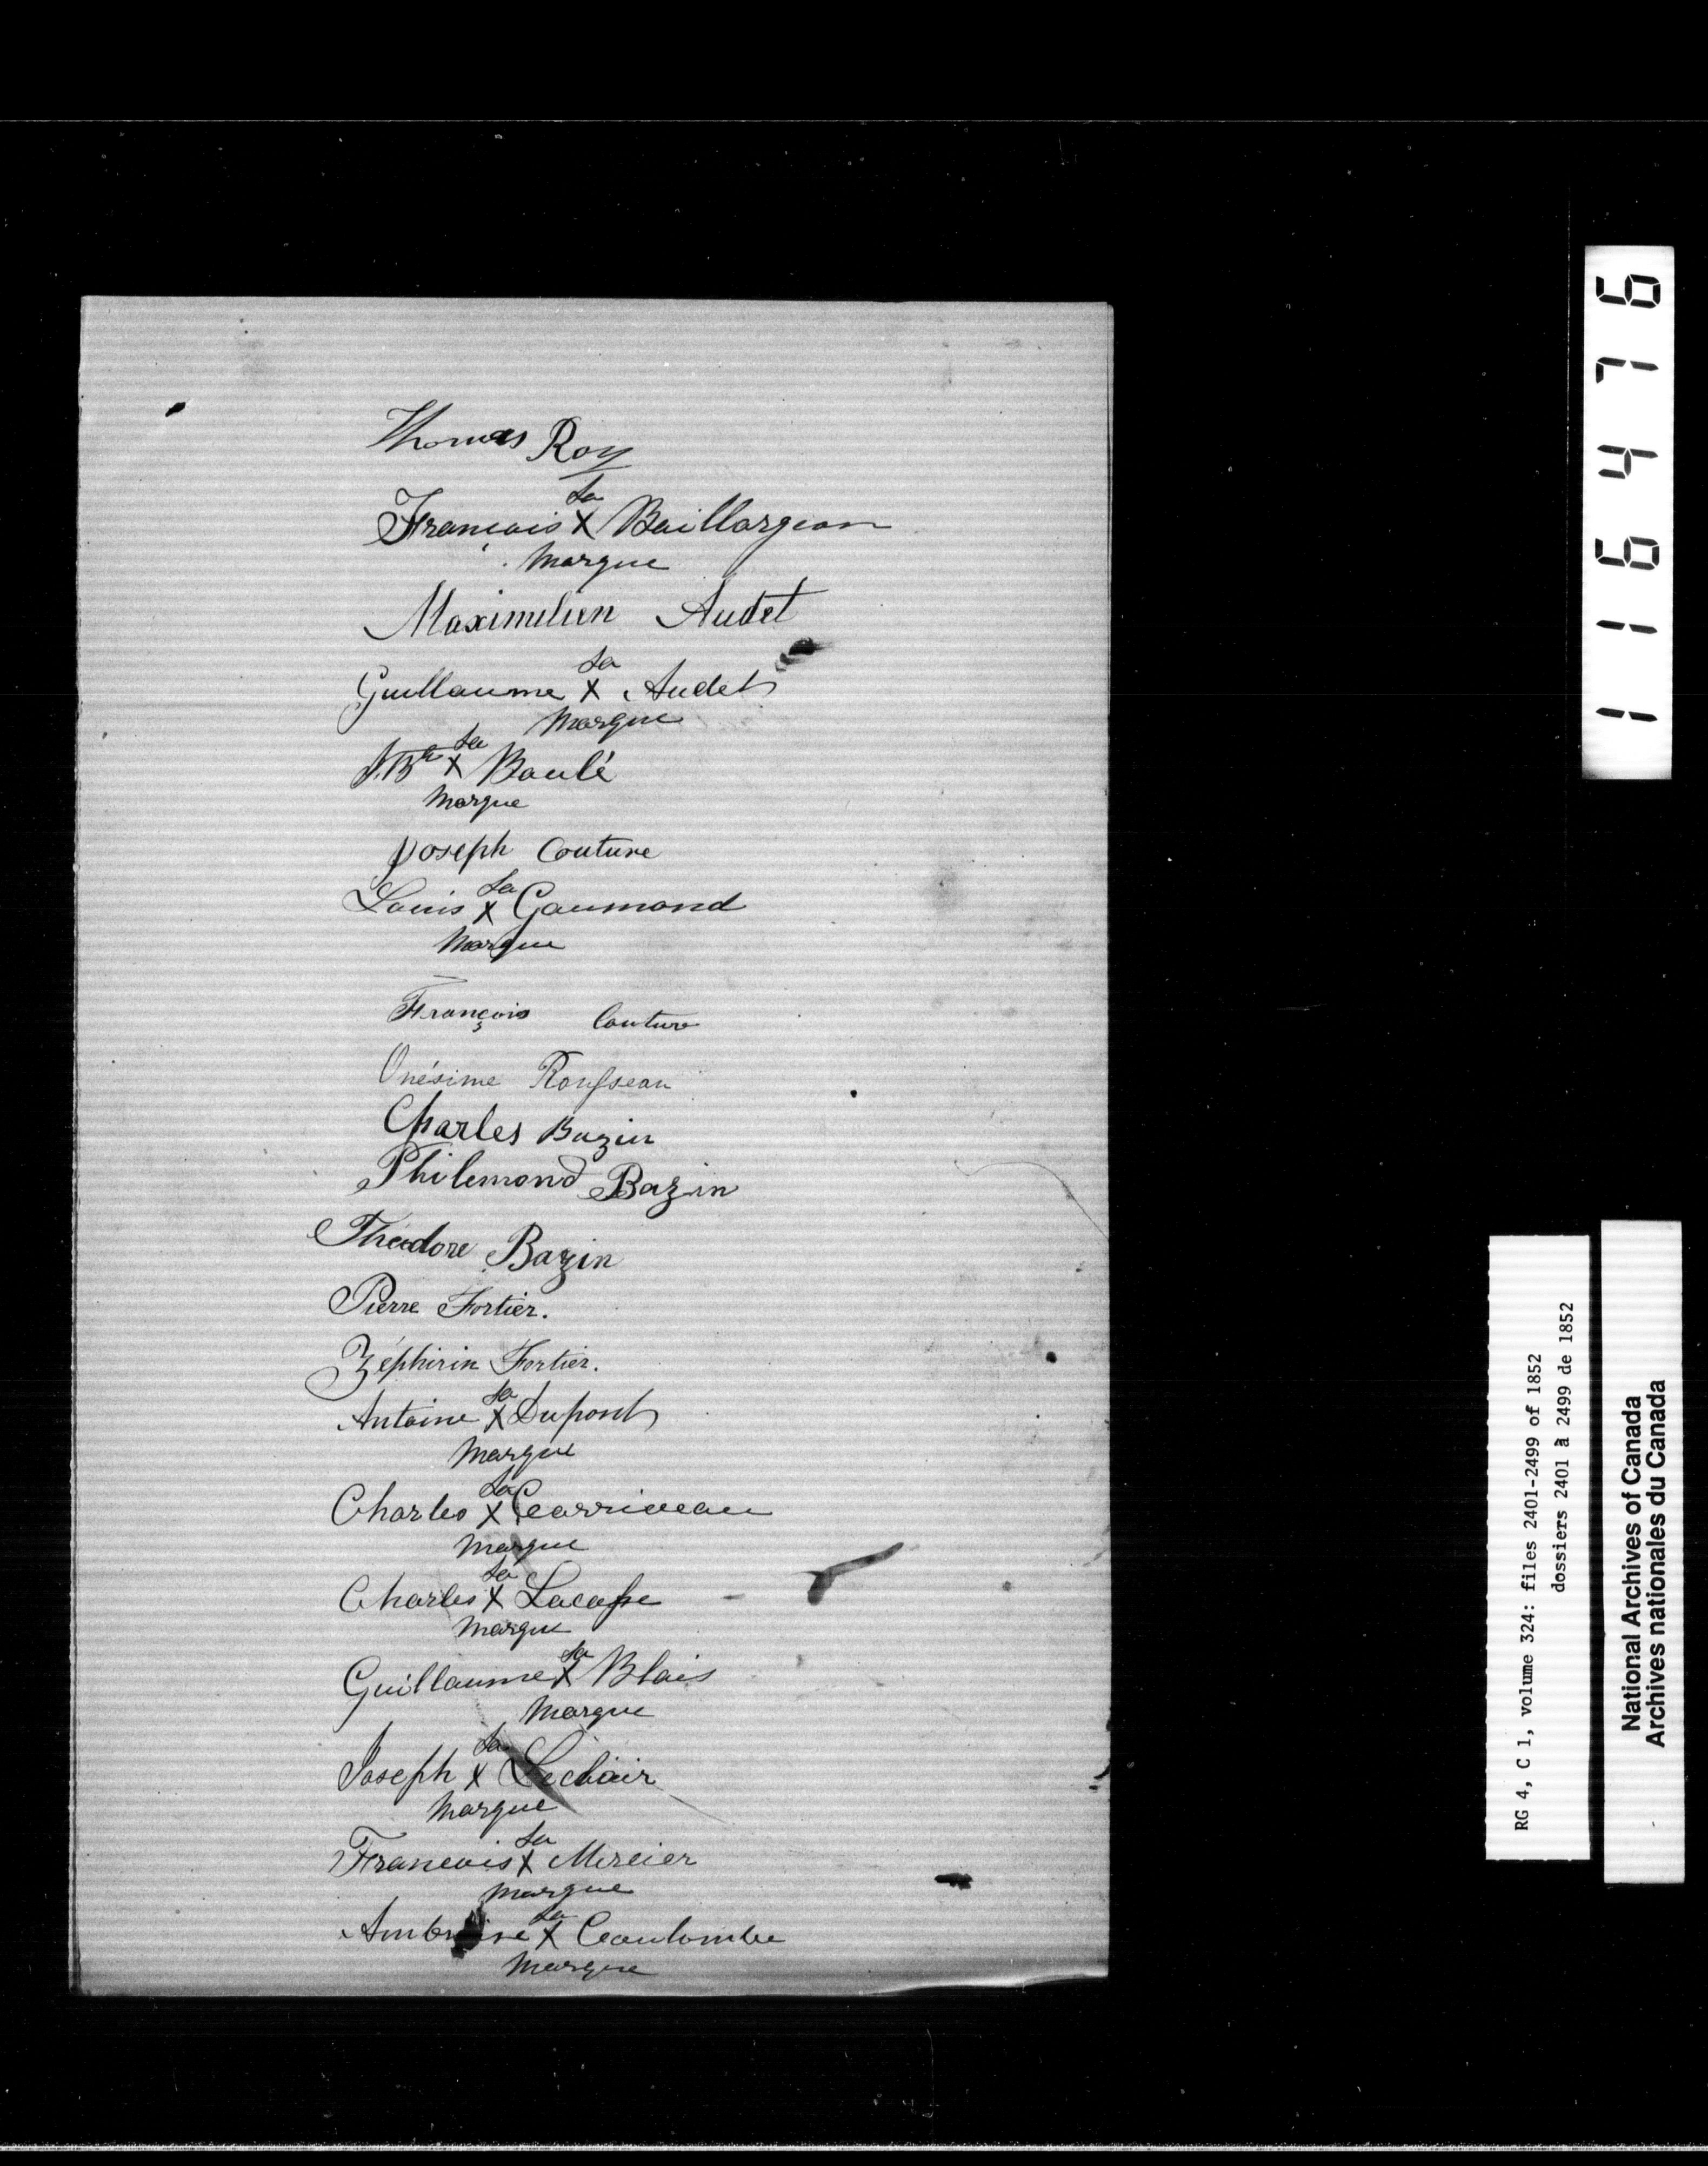 Thomas Roy
sa
François X Baillargeon
marque
Maximilien Audet
sa
Guillaume X Audet
marque
sa
J. Bte X Boulé
marque
Joseph Couture
sa
Louis X Gaumond
marque
François Couture
Onésime Rousseau
Charles Bazin
Philemond Bazin
Théodore Bazin
Pierre Fortier.
Zéphirin Fortier.
sa
Antoine X Dupont
marque
sa
Charles X Carriveau
marque
sa
Charles X Lacasse
marque
sa
Guillaume X Blais
marque
sa
Joseph X Leclair
marque
sa
Francois X Mercier
marque
sa
Ambroise X Coulombe
marque
116476
RG 4, C 1, volume 324: files 2401-2499 of 1852
dossiers 2401 à 2499 de 1852
National Archives of Canada
Archives nationales du Canada